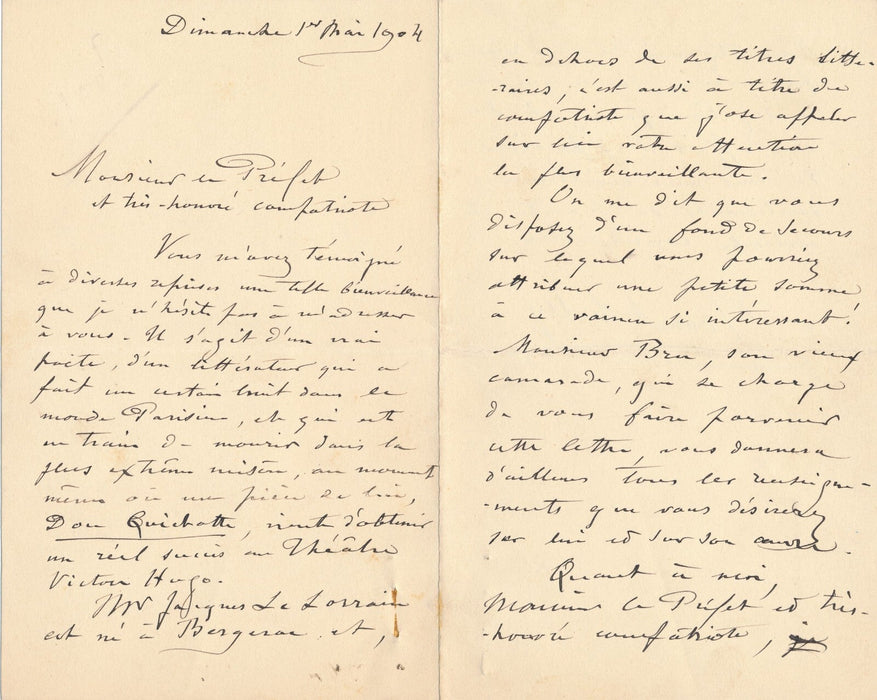 Dimanche 1er Mai 1904
Monsieur le Préfet
et très-honoré compatriote
Vous m'avez témoigné
à diverses reprises une telle bienveillance
que je n'hésite pas à m'adresser
à vous. Il s'agit d'un vrai
poète, d'un littérateur qui a
fait un certain bruit dans le
monde Parisien, et qui est
en train de mourir dans la
plus extrême misère, au moment
même où une pièce de lui,
Don Quichotte, vient d'obtenir
un réel succès au Théâtre
Victor Hugo.
Mr Jacques Le Lorrain
est né à Bergerac et,
en dehors de ses titres litté-
-raires, c'est aussi à titre de
compatriote que j'ose appeler
sur lui votre attention
la plus bienveillante.
On me dit que vous
disposez d'un fond de secours
sur lequel vous pourriez
attribuer une petite somme
à ce vaincu si intéressant!
Monsieur Bru, son vieux
camarade, qui se charge
de vous faire parvenir
cette lettre, vous donnera
d'ailleurs tous les renseigne-
-ments que vous désirerez
sur lui et sur son œuvre.
Quant à moi,
Monsieur le Préfet et très-
-honoré compatriote,